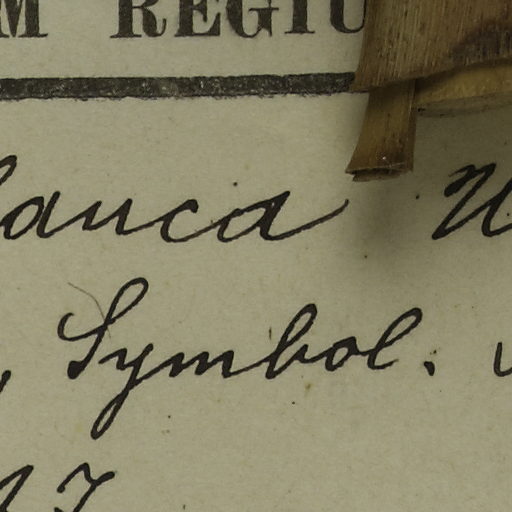 M REGIU
lauca U
, Symbol.